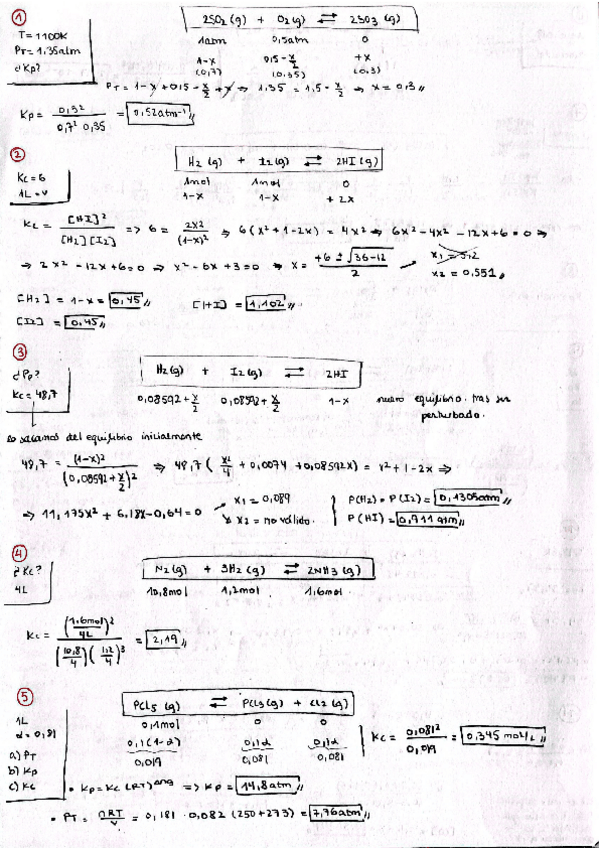 ①
2SO₂(g) + O₂(g) ⇄ 2SO₃(g)
T = 1100K
PT = 1,35atm
¿Kp?
1atm 0,5atm 0
1-x 0,5-x/2 +x
(0,7) (0,35) (0,3)
PT = 1-x+0,5-x/2+x ⇒ 1,35 = 1,5-x/2 ⇒ x = 0,3
Kp = 0,3²/0,7² 0,35 = 0,52atm⁻¹
②
H₂(g) + I₂(g) ⇄ 2HI(g)
Kc = 6
1L = V
1mol 1mol 0
1-x 1-x +2x
Kc = [HI]²/[H₂][I₂] => 6 = 2x²/(1-x)² ⇒ 6(x²+1-2x) = 4x² ⇒ 6x²-4x²-12x+6=0 ⇒
⇒ 2x²-12x+6=0 ⇒ x²-6x+3=0 ⇒ x = +6±√36-12/2
x₁ = 5,2
x₂ = 0,551
[H₂] = 1-x = 0,45 [HI] = 1,102
[I₂] = 0,45
③
H₂(g) + I₂(g) ⇄ 2HI
¿Pp?
Kc = 48,7
0,08592+x/2 0,08592+x/2 1-x nuevo equilibrio tras ser
perturbado.
lo sabemos del equilibrio inicialmente
48,7 = (1-x)²/(0,08592+x/2)² ⇒ 48,7(x²/4 + 0,0074 + 0,08592x) = x²+1-2x ⇒
⇒ 11,175x² + 6,18x - 0,64 = 0
x₁ = 0,089
x₂ = no válido.
P(H₂) = P(I₂) = 0,1305atm
P(HI) = 0,911atm
④
N₂(g) + 3H₂(g) ⇄ 2NH₃(g)
¿Kc?
4L
10,8mol 1,2mol 1,6mol
Kc = (1,6mol/4L)²/(10,8/4)(1,2/4)³ = 2,19
⑤
PCl₅(g) ⇄ PCl₃(g) + Cl₂(g)
1L
α = 0,81
a) PT
b) Kp
c) Kc
0,1mol 0 0
0,1(1-α) 0,1α 0,1α
0,019 0,081 0,081
Kc = 0,081²/0,019 = 0,345 mol/L
• Kp = Kc(RT)^Δng => Kp = 14,8atm
• PT = nRT/V = 0,181 · 0,082 (250+273) = 7,76atm